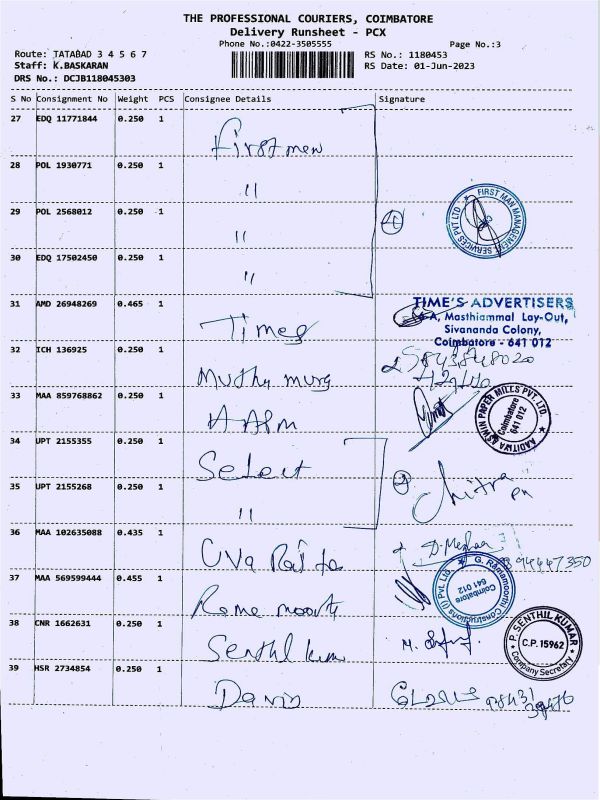 THE PROFESSIONAL COURIERS, COIMBATORE
Delivery Runsheet - PCX
Phone No.:0422-3505555 Page No.:3
Route: TATABAD 3 4 5 6 7 RS No.: 1180453
Staff: K.BASKARAN RS Date: 01-Jun-2023
DRS No.: DCJB118045303
S No Consignment No Weight PCS Consignee Details Signature
27 EDQ 11771844 0.250 1 First men
28 POL 1930771 0.250 1 "
29 POL 2568012 0.250 1 " 4 FIRST MAN MANAGEMENT SERVICES PVT LTD
30 EDQ 17502450 0.250 1 "
31 AMD 26948269 0.465 1 Times TIME'S ADVERTISERS
A, Masthiammal Lay-Out,
Sivananda Colony,
Coimbatore - 641 012
32 ICH 136925 0.250 1 Muthu
33 MAA 859768862 0.250 1 AADITYA ASWIN PAPER MILLS PVT. LTD. Coimbatore 641 012
34 UPT 2155355 0.250 1 Select
35 UPT 2155268 0.250 1 " 2 Chitra
36 MAA 102635088 0.435 1
37 MAA 569599444 0.455 1 Rame moorti G. Ramamoorthi Constructions (I) Pvt. Ltd. Coimbatore 641 012
38 CNR 1662631 0.250 1 Senthil kum P. SENTHIL KUMAR C.P. 15962 Company Secretary
39 HSR 2734854 0.250 1